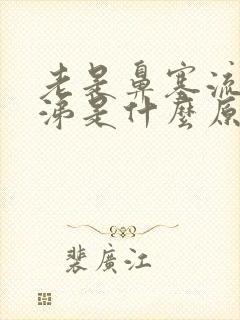 老是鼻塞流
涕是什麼原
裴廣江